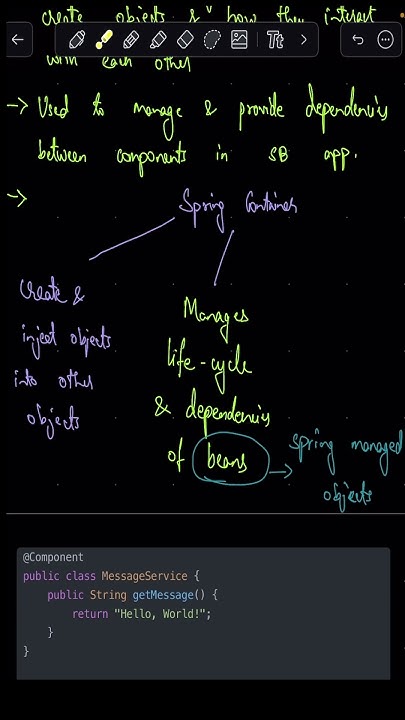 create objects & how they interact
with each other
→ Used to manage & provide dependencies
between components in SB app.
→
Spring Container
Create &
inject objects
into other
objects
Manages
life-cycle
& dependencies
of beans
→ Spring managed
objects
Tt
@Component
public class MessageService {
public String getMessage() {
return "Hello, World!";
}
}